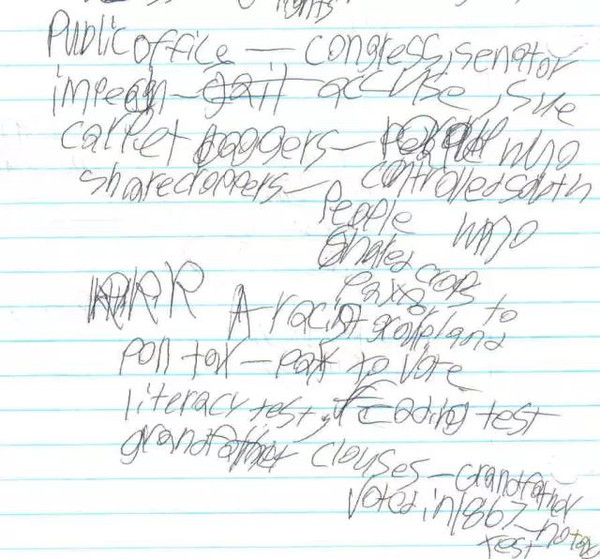 rights
Public office — congress, senator
impeach — accuse, sue
carpet baggers — people who
sharecroppers — controlled south
People who
shares crops
to
A racist group land
poll tax — pay to vote
literacy test, reading test
grandfather clauses — grandfather
voted in 1867 no tax
test